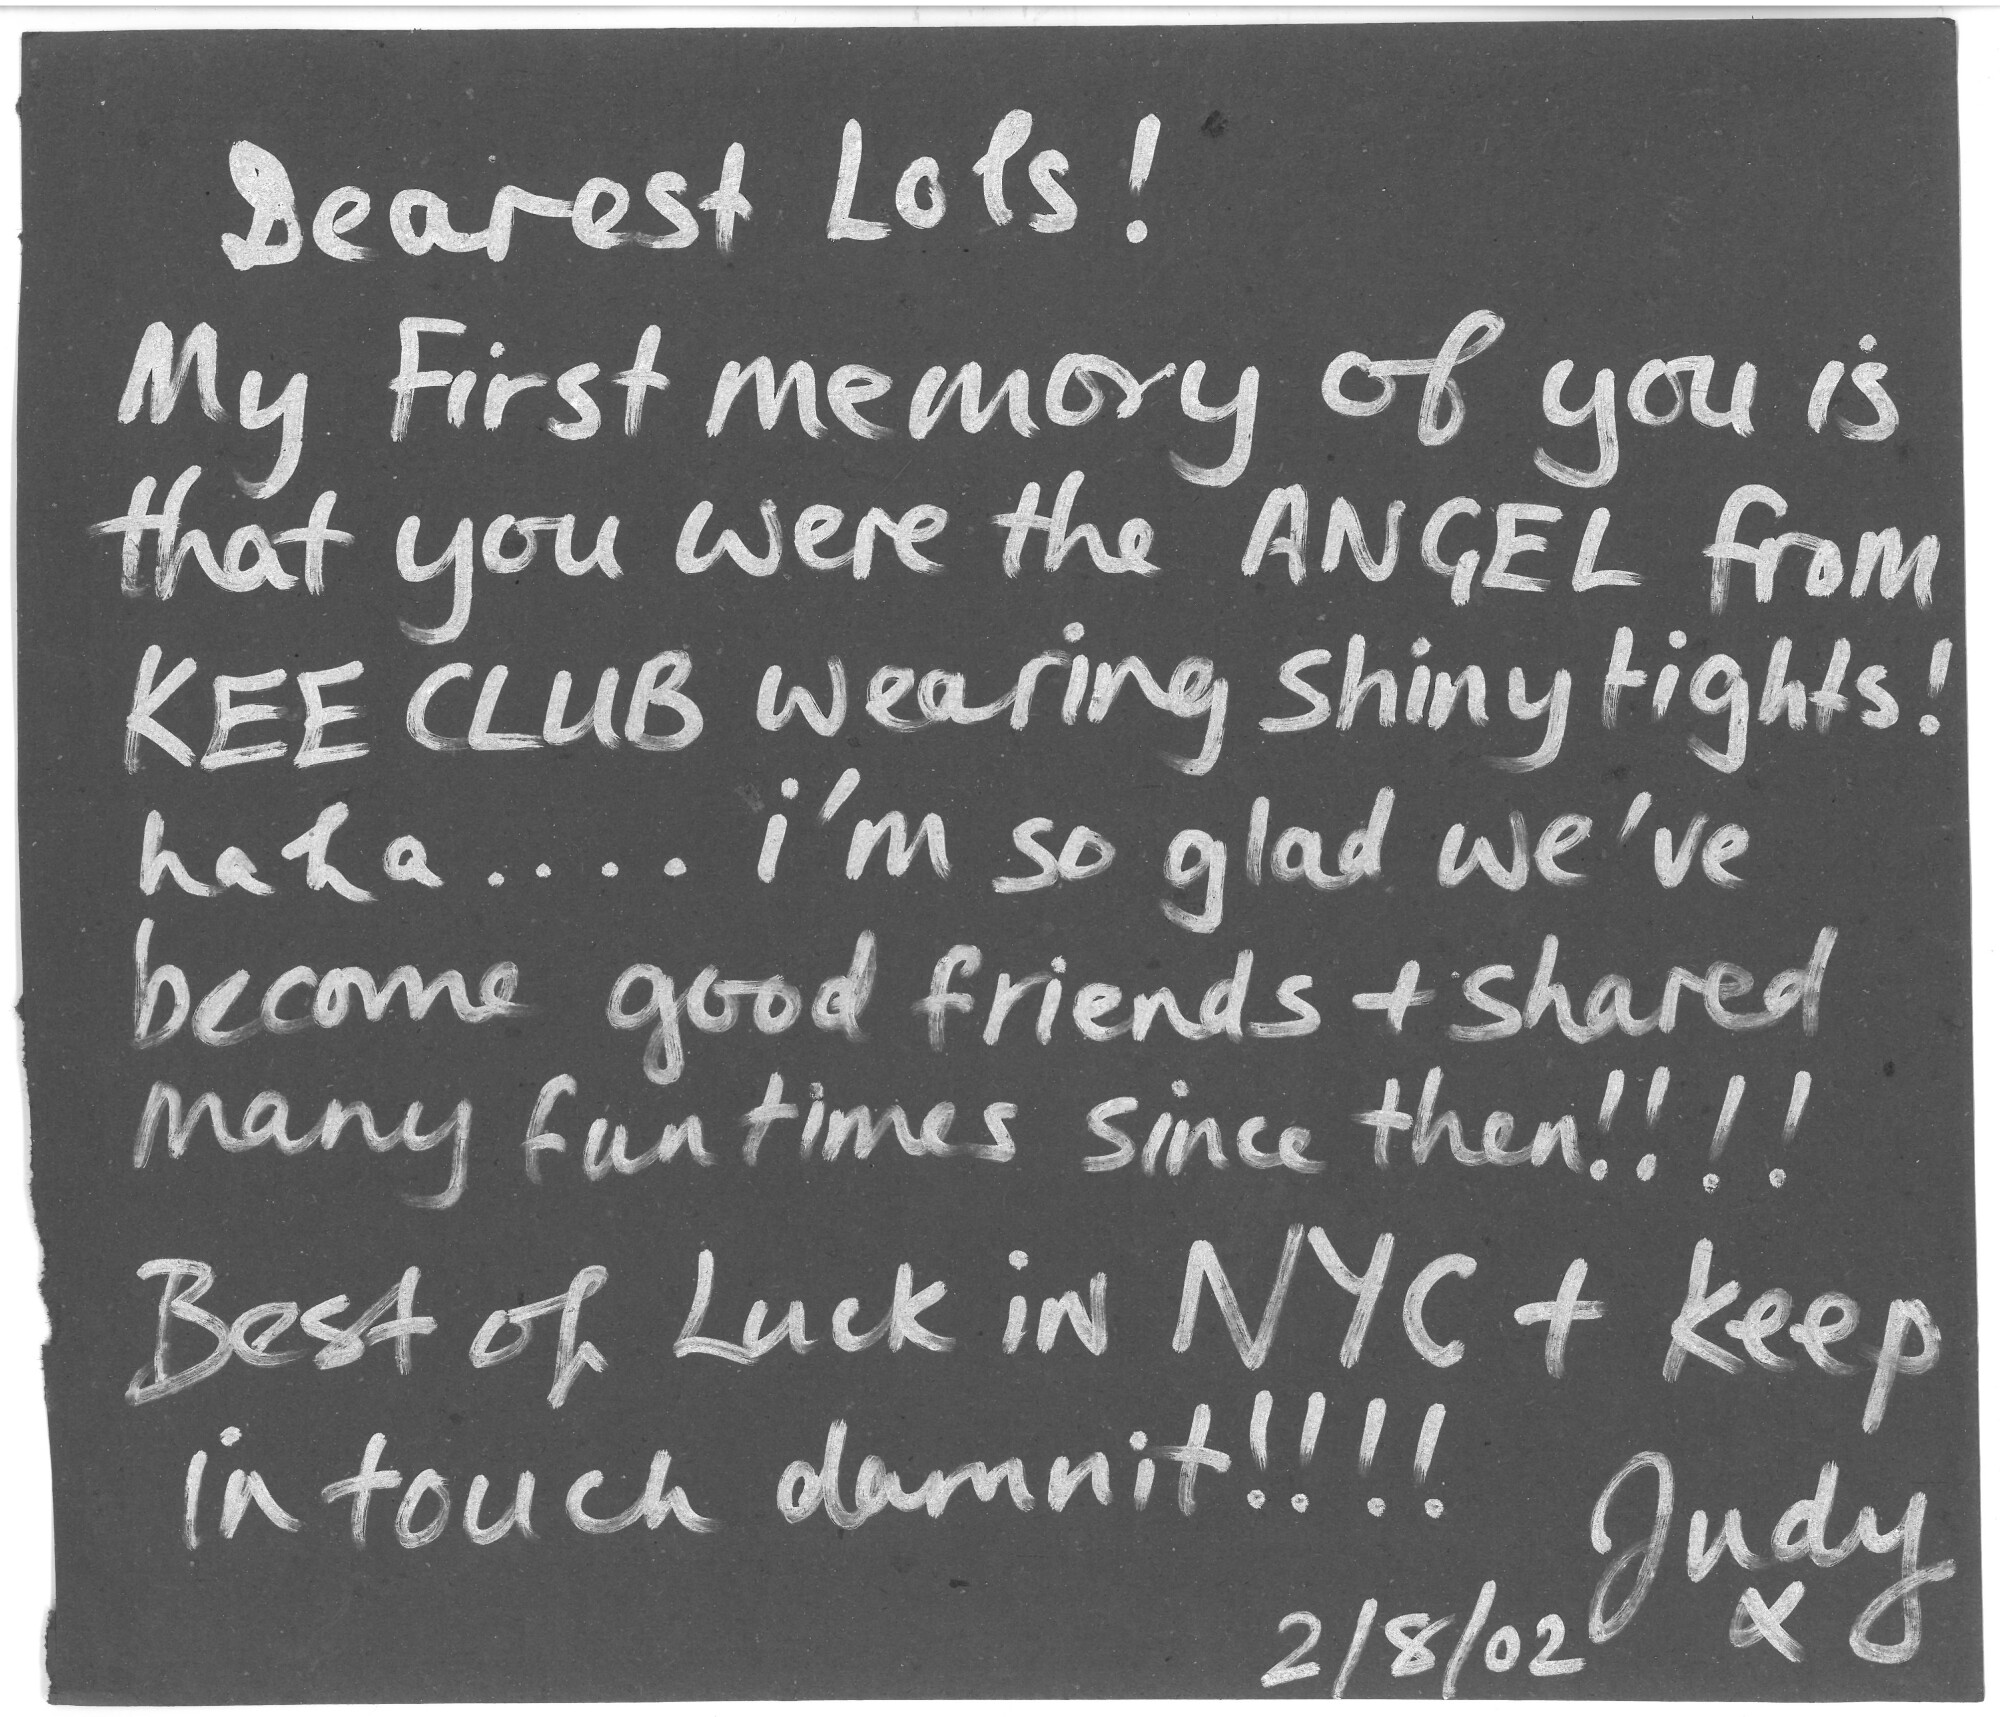 Dearest Lols!
My First memory of you is
that you were the ANGEL from
KEE CLUB wearing shiny tights!
haha.... i'm so glad we've
become good friends + shared
many fun times since then!!!!
Best of Luck in NYC + keep
in touch damnit!!!!
Judy
x
2/8/02